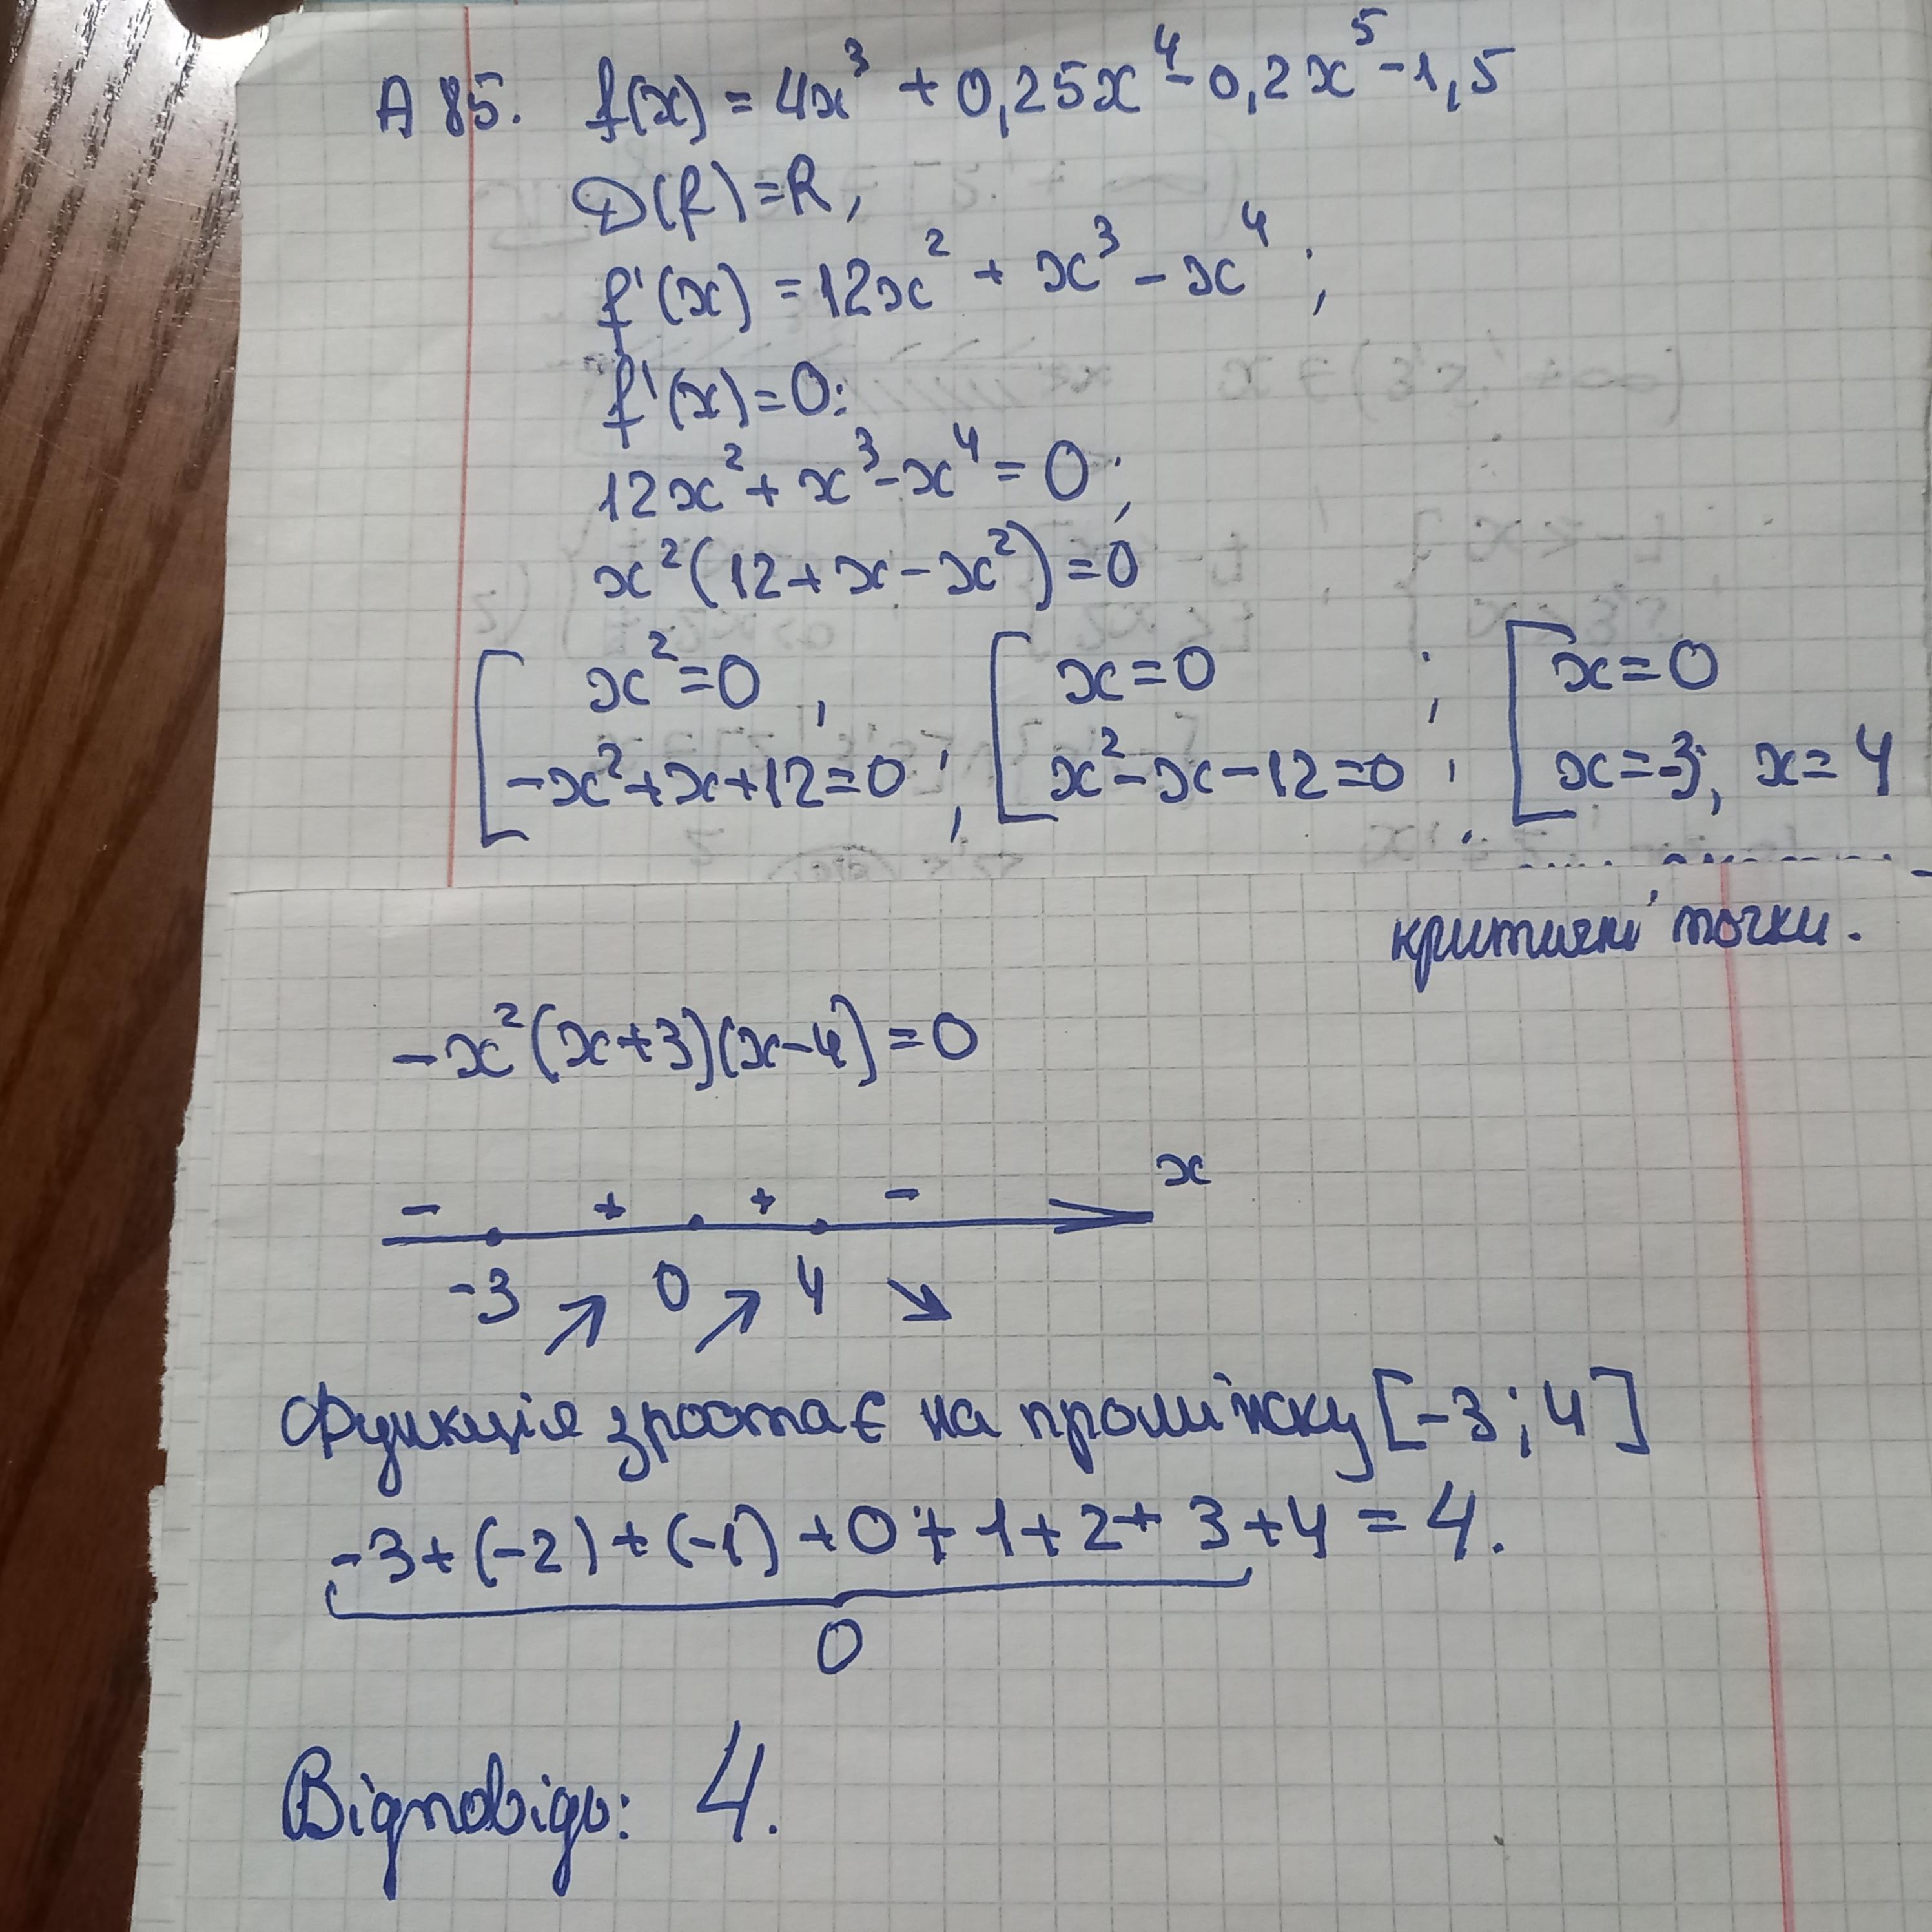 А 85. f(x) = 4x³ + 0,25x⁴ - 0,2x⁵ - 1,5
D(f) = R,
f'(x) = 12x² + x³ - x⁴ ;
f'(x) = 0:
12x² + x³ - x⁴ = 0 ;
x²(12 + x - x²) = 0
[ x² = 0 , [ x = 0 ; [ x = 0
-x² + x + 12 = 0 ; x² - x - 12 = 0 ; x = -3; x = 4
критичні точки.
-x²(x+3)(x-4) = 0
- + + - x
-3 ↗ 0 ↗ 4 ↘
Функція зростає на проміжку [-3; 4]
-3 + (-2) + (-1) + 0 + 1 + 2 + 3 + 4 = 4.
0
Відповідь: 4.